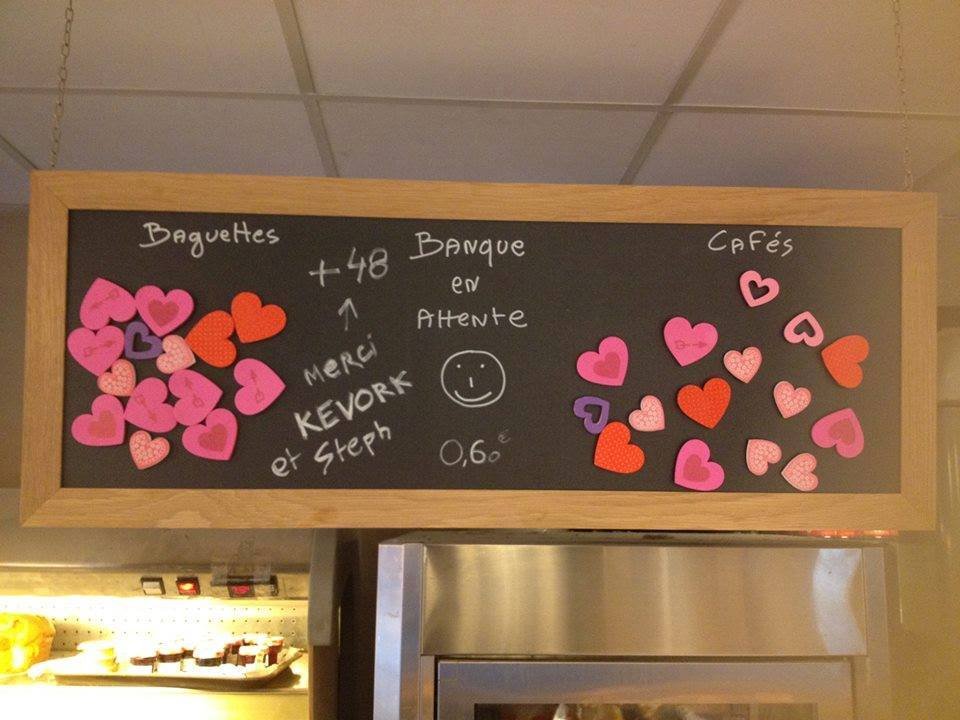 Baguettes
+48
MERCI
KEVORK
et Steph
BANQUE
en
Attente
0,60€
CAFÉS